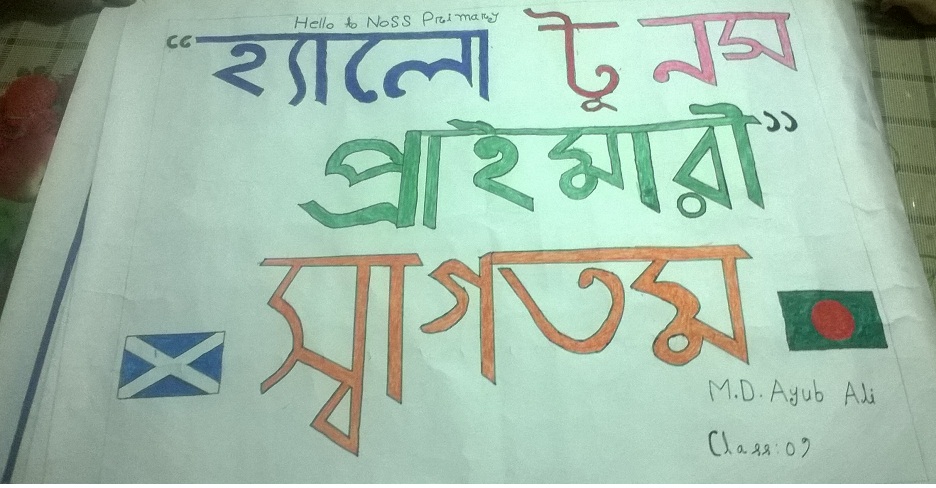 Hello to NoSS Primary
“হ্যালো টু নস
প্রাইমারী”
স্বাগতম
M.D. Ayub Ali
Class: 09